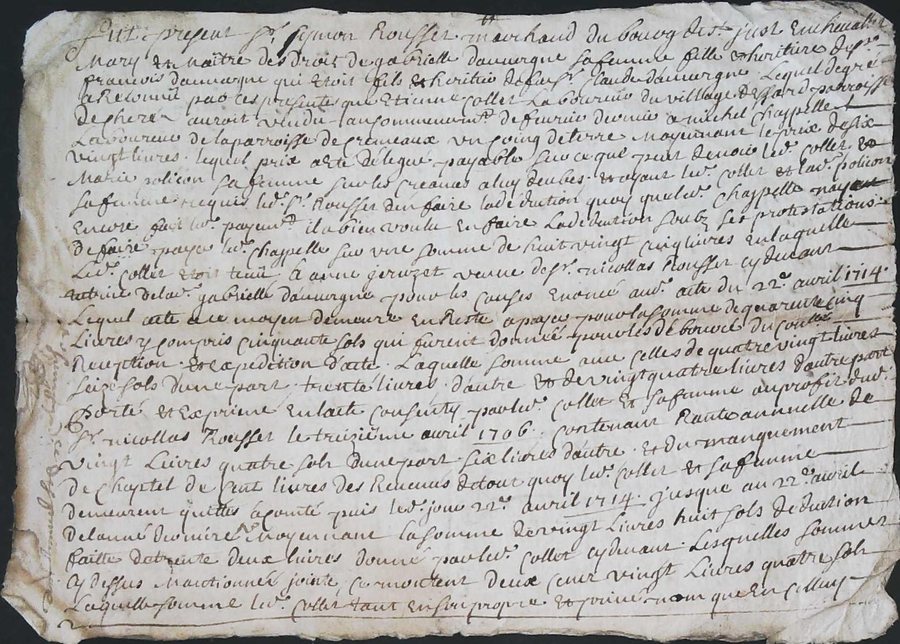 fut present Sr. Symon Rousset marchand du bourg de St. just Enchevallet
Mary et maître des droits de gabrielle dauuergne sa femme fille & heritiere de Sr.
francois dauuergne qui etoit fils et heritier de feu Sr. Claude dauuergne Lequel de gré
a Reconnu par ces presente que Etienne Collet Laboureur du village paroisse
de cherer auroit vendu au commencemt. de feurier dernier a michel Chappelle
Laboureur de la parroisse de Cremeaux un coing de terre moyennant le prix de six
vingt liures lequel prix a este delegué payable sur ce que peut devoir led. Collet et
Marie policon sa femme sur les creances a luy deubes et ayant led. Collet et lad. policon
sa femme requis led. Sr. Rousset den faire la deduction quoy que led. Chappelle nayant
Encore fait led. payemt. il a bien voulu en faire la deduction soubz ses protestations
de faire payer led. Chappelle sur une somme de huit vingt cinq liures en laquelle
Led. Collet etoit tenu a anne gernzet veuue de Sr. nicollas Rousset cy deuant
tutrice de lad. gabrielle dauuergne pour les causes Enoncé aud. acte du 22e. auril 1714.
Lequel acte a ce moyen demeure En Reste a payer pour la somme de quarente cinq
Liures y compris cinquante sols qui furent donnée pour les debource du Conlle.
Reception et expedition dacte Laquelle somme auec celles de quatre vingt liures
seize sols dune part trente liures dautre et de vingt quatre liures dautre part
porté et exprimé en lacte consenty par led. Collet et sa femme au profit dud.
Sr. nicollas Rousset le treizieme auril 1706. contenant Rante annuelle de
vingt Liures quatre sols dune part six liures dautre et du manquement
de Chaptel de Cent liures des Reuenus de tout quoy led. Collet et sa femme
demeurent quittes a conté puis led. jour 22e. auril 1714. jusque au 22e. auril
de lanné derniere Moyennant la somme de vingt liures huit sols deduction
faitte de trente deux liures donné par led. Collet cy deuant Lesquelles sommes
cy dessus Mantionnée jointe ce montent deux cent vingt Liures quatre sols
Laquelle somme led. Collet tant En son propre et priué nom que En Celluy